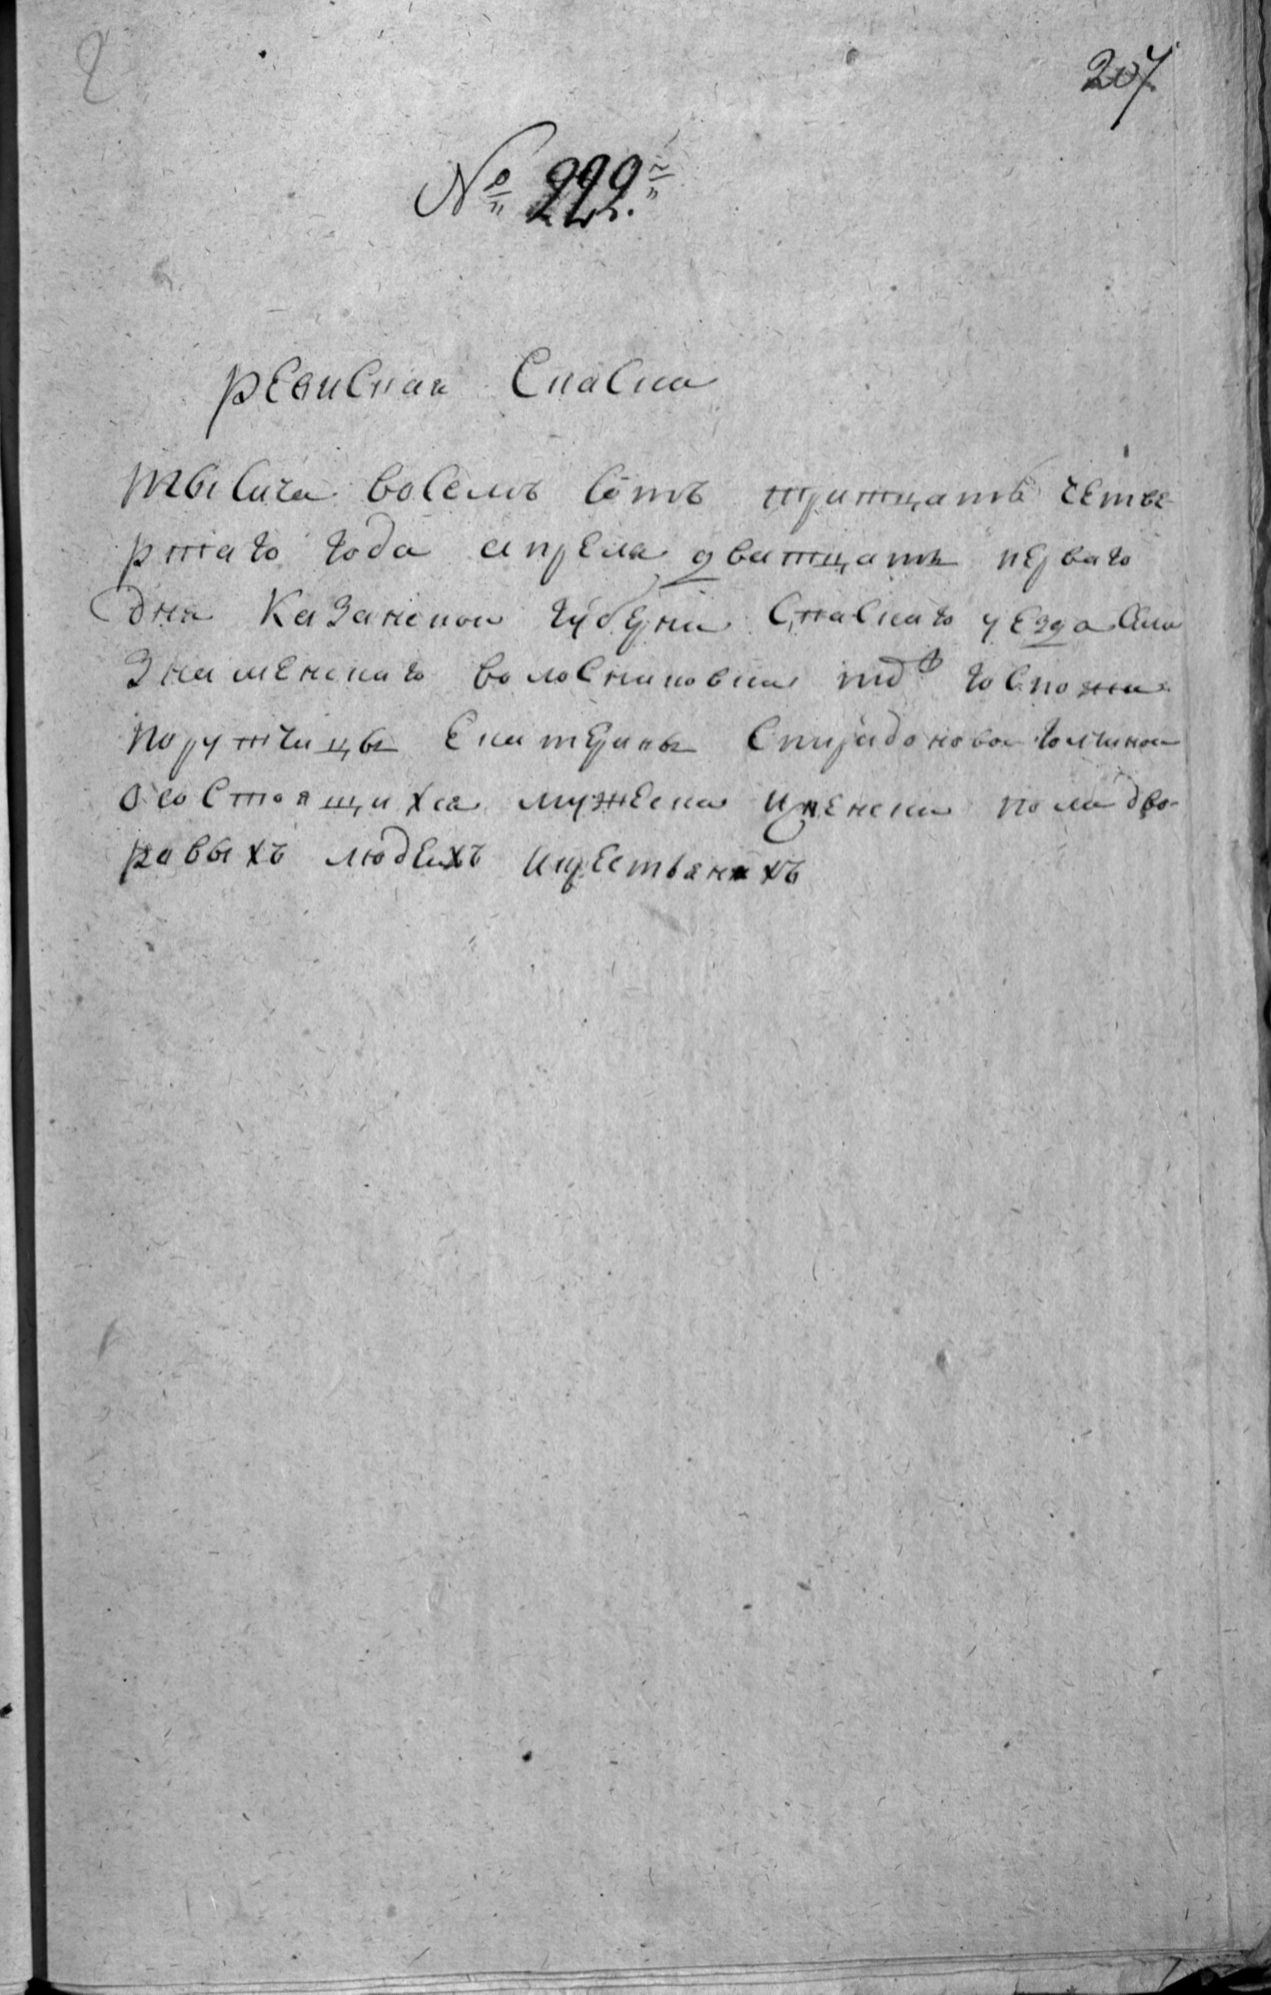 207
№ 222.
ревиская Скаска
тысича восемь сотъ тритцать четве
ртаго года апреля дватцать перваго
дня Казанскои губернии Спаскаго уезда села
Знаменскаго госпожи
порутчицы Екатерины Спиридоновои
о состоящихся мужеска иженска пола дво-
ровыхъ людехъ икрестьянехъ